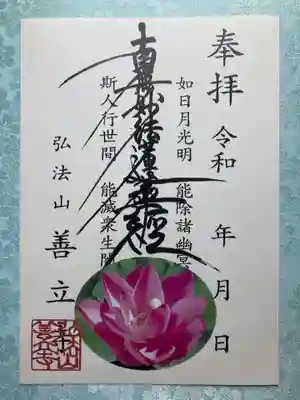 奉拝 令和 年 月 日
如日月光明 能除諸幽冥
南無妙法蓮華経
斯人行世間 能滅衆生闇
弘法山 善立